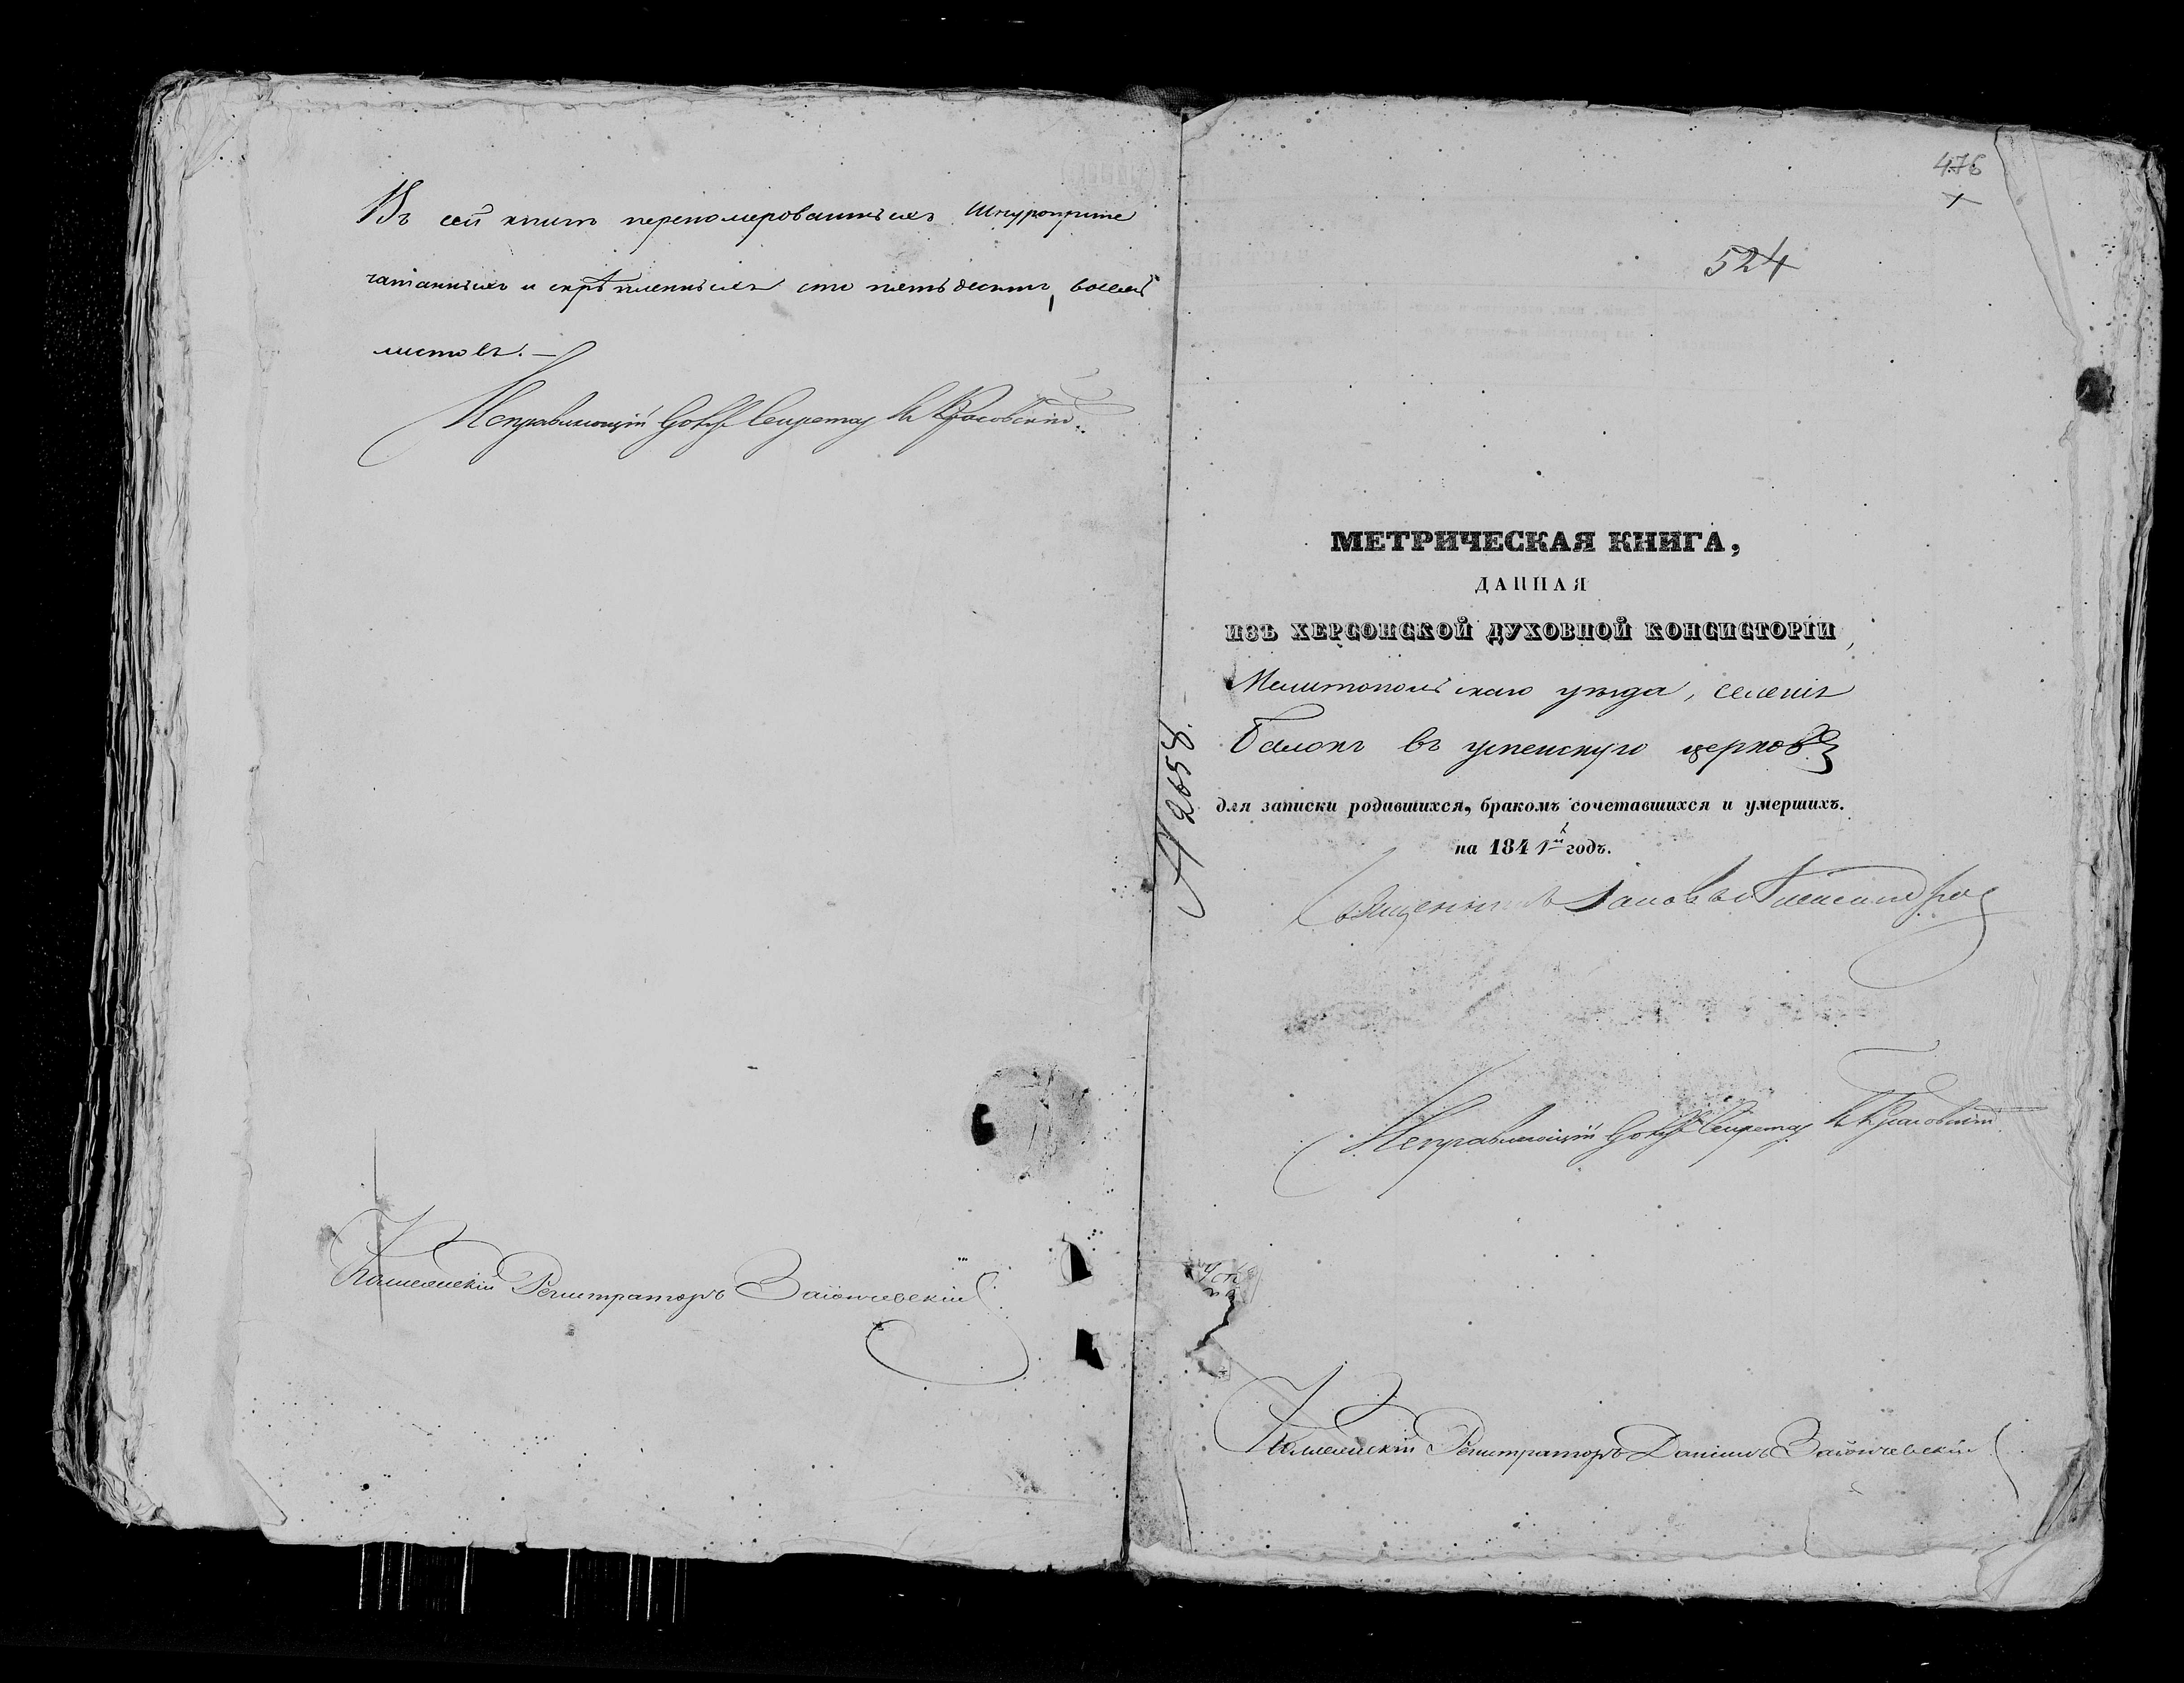 Въ сей книгѣ перепомерованныхъ шнуроприпе
чатанныхъ и скрѣпленныхъ сто пятьдесятъ восемь
листовъ. —
Исправляющій Должн Секретар
Коллежскій Регистраторъ Заіончевскій
476
524
МЕТРИЧЕСКАЯ КНИГА,
ДАННАЯ
ИЗЪ ХЕРСОНСКОЙ ДУХОВНОЙ КОНСИСТОРІИ,
Мелитопольскаго уѣзда, селенія
Балокъ въ успенскую церковь
для записки родившихся, бракомъ сочетавшихся и умершихъ.
на 1841й годъ.
№ 2058.
Священникъ Іаковъ Александров
Исправляющій Должн Секретар
Коллежскій Регистраторъ Даніилъ Заіончевскій